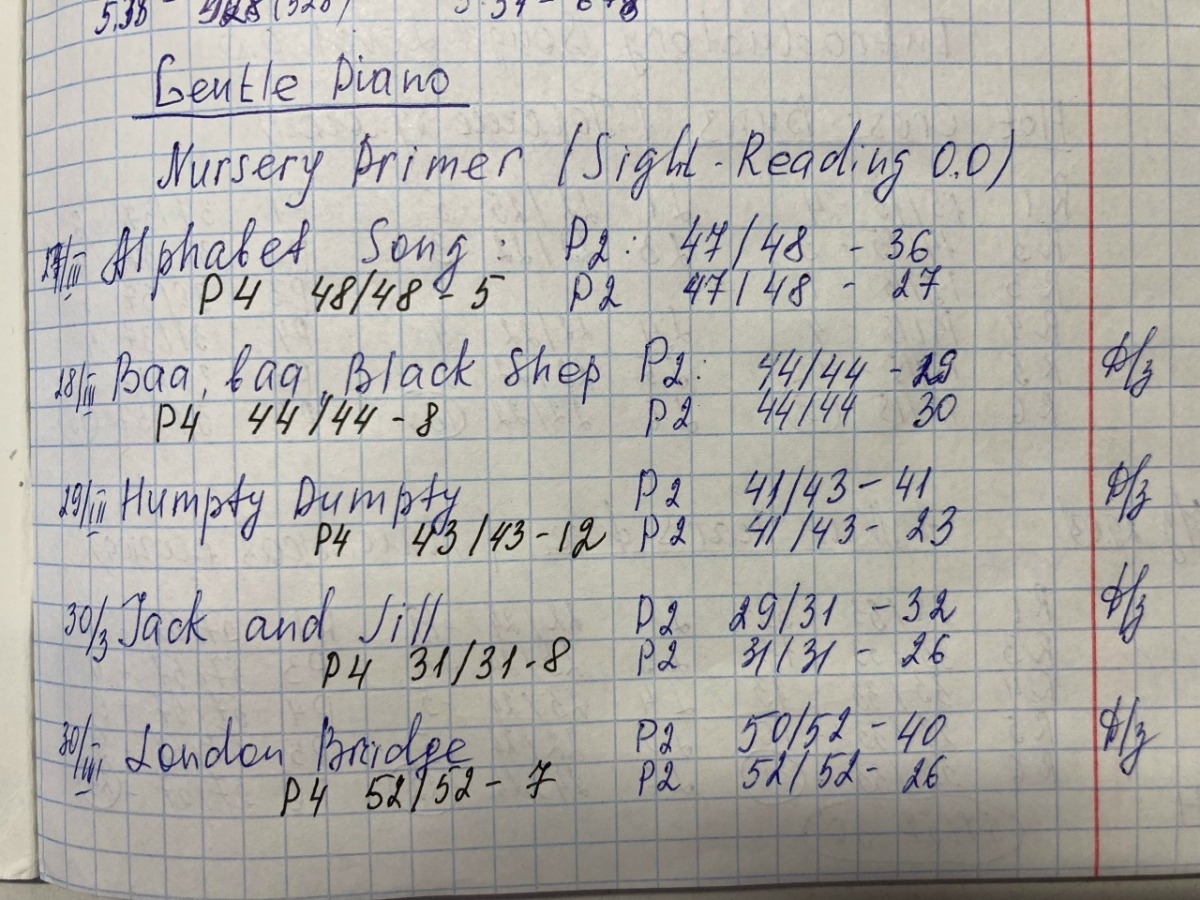 5.38 -
Gentle Piano
Nursery Primer (Sight-Reading 0.0)
27/III Alphabet Song: P2: 47/48 - 36
P4 48/48 - 5 P2 47/48 - 27
28/III Baa, baa, Black Shep P2: 44/44 - 29 Д/з
P4 44/44 - 8 P2 44/44 30
29/III Humpty Dumpty P2 41/43 - 41 Д/з
P4 43/43 - 12 P2 41/43 - 23
30/3 Jack and Jill P2 29/31 - 32 Д/з
P4 31/31 - 8 P2 31/31 - 26
30/III London Bridge P2 50/52 - 40 Д/з
P4 52/52 - 7 P2 52/52 - 26